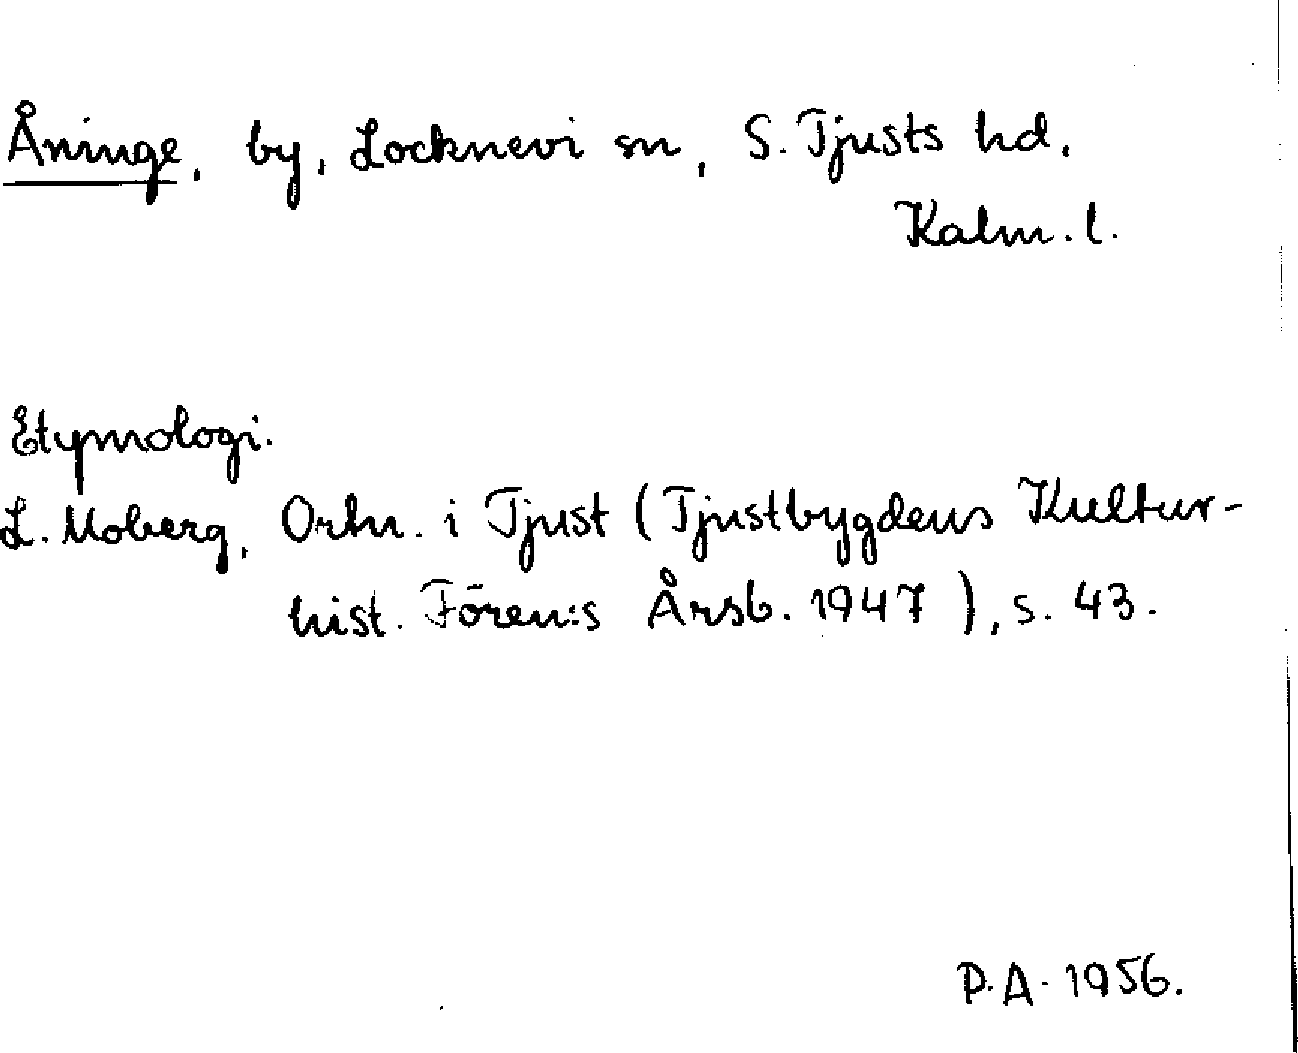 Åninge, by, Locknevi sn, S. Tjusts hd,
Kalm. l.
Etymologi.
L. Moberg, Ortn. i Tjust (Tjustbygdens Kultur-
hist. Fören:s Årsb. 1947), s. 43.
P.A. 1956.